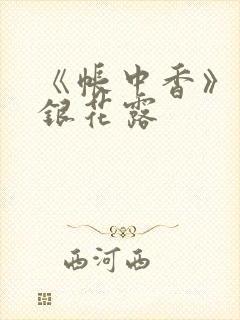 《帐中香》
银花露
西河西